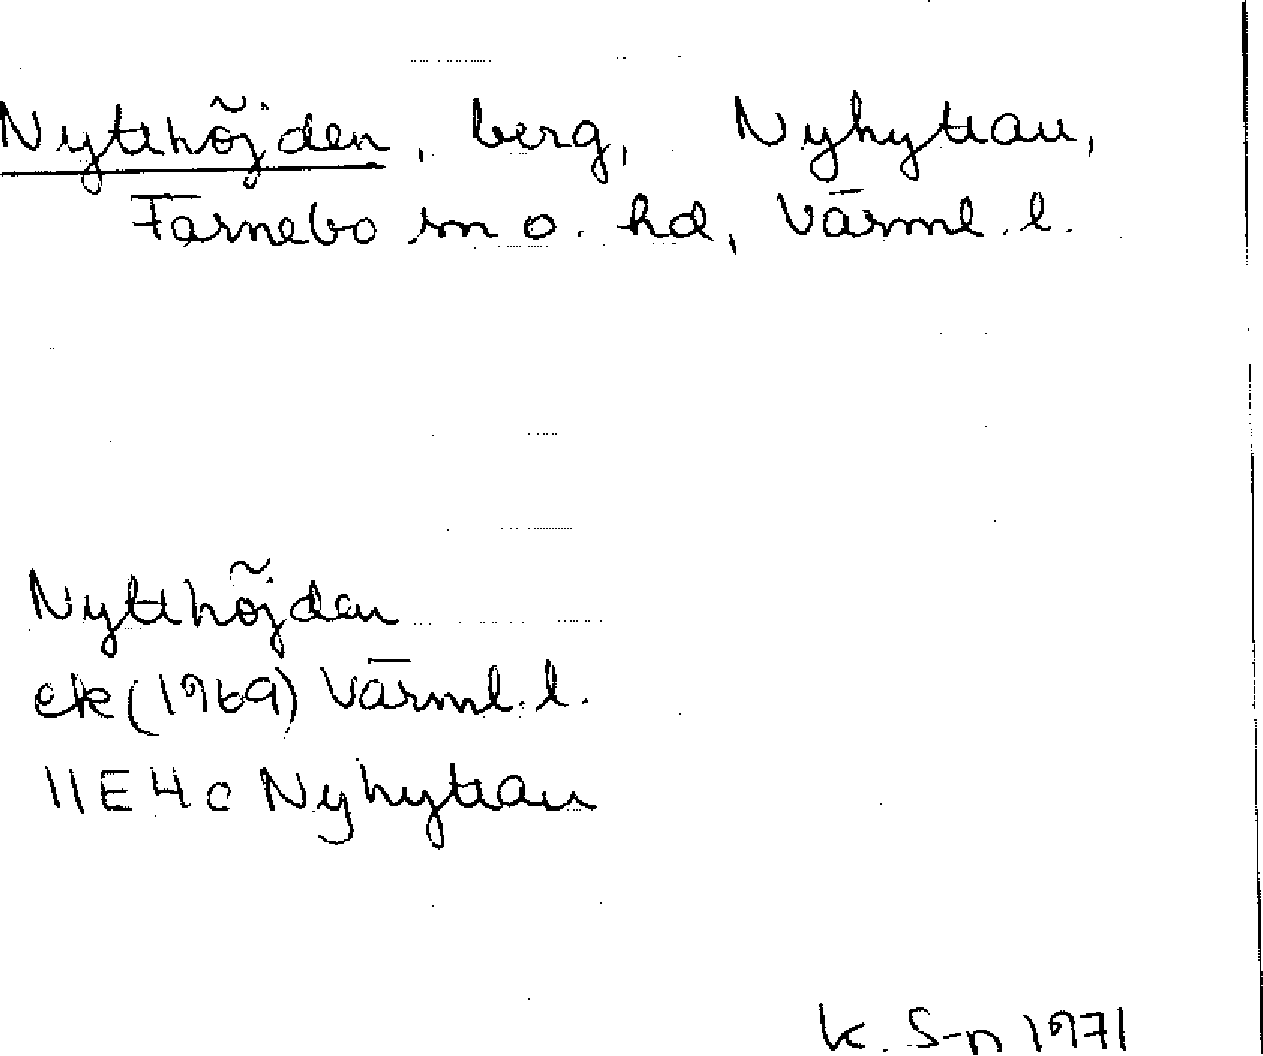 Nytthöjden, berg, Nyhyttan,
Färnebo sn o. hd, Värml. l.
Nytthöjden
ek (1969) Värml. l.
11E4c Nyhyttan
K. S-n 1971